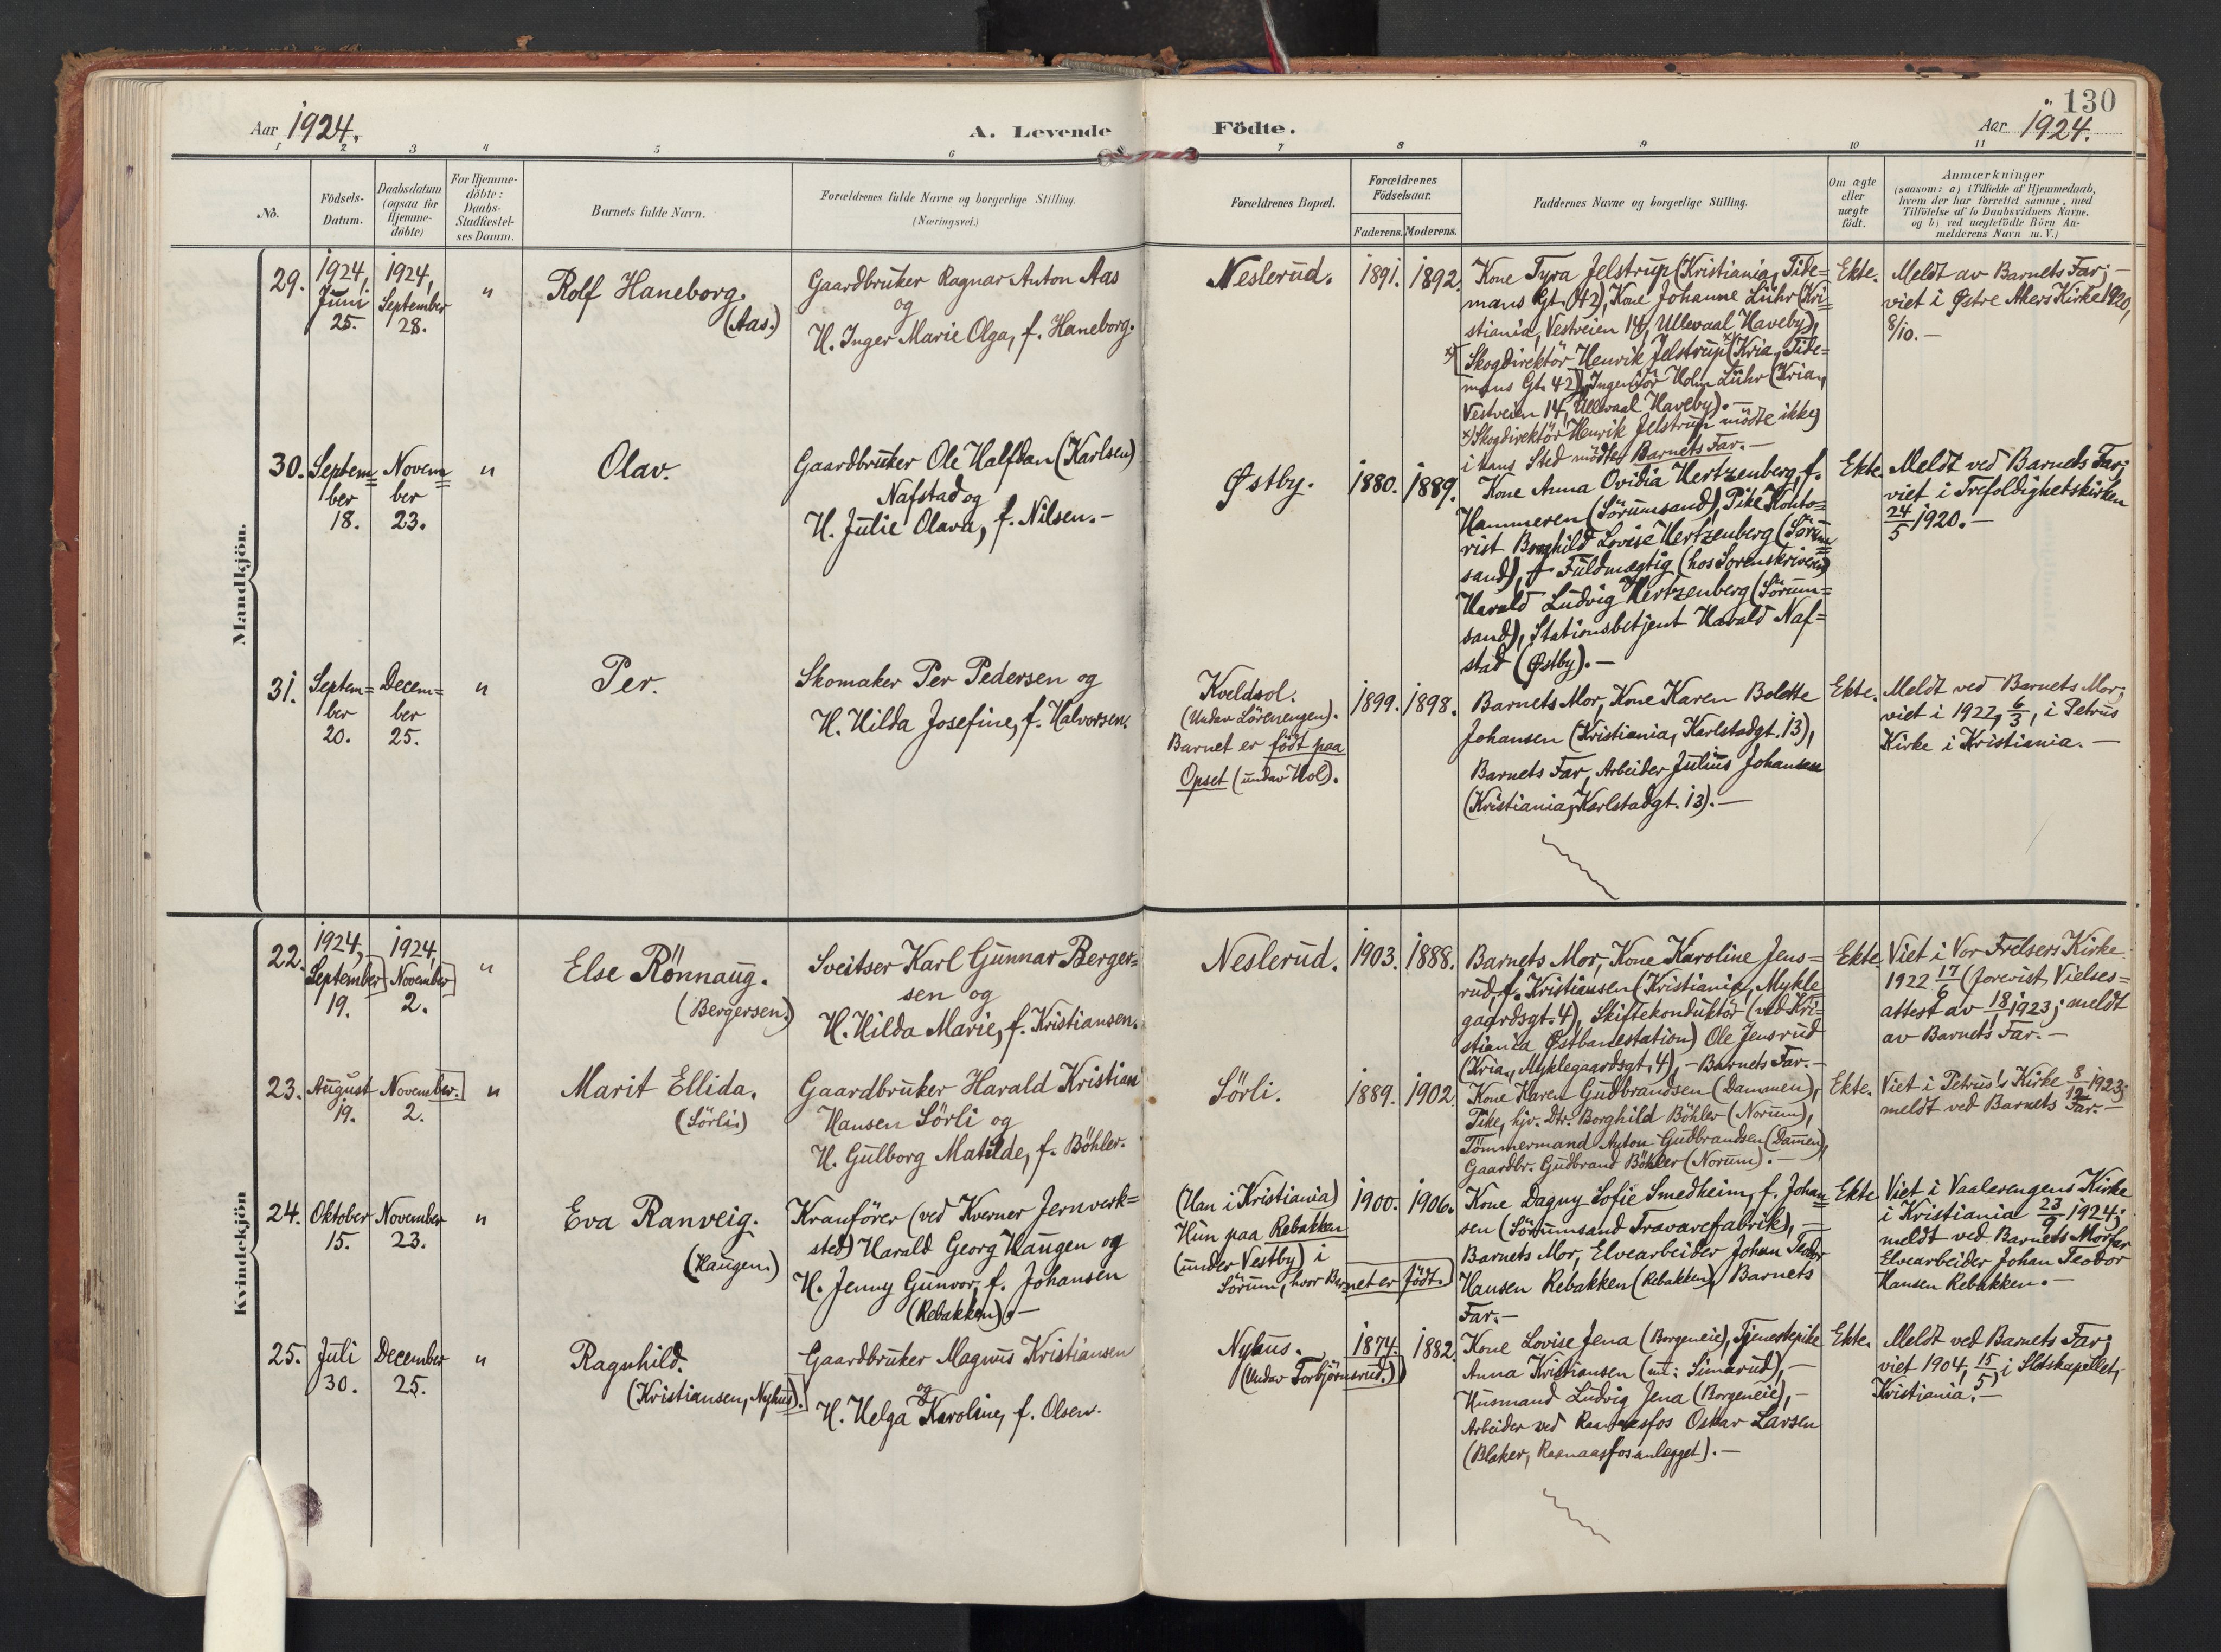 Aar 1924.
A. Levende Födte.
130
Aar 1924.
1 2 3 4 5 6 7 8 9 10 11
No.
Födsels-
Datum.
Daabsdatum
(ogsaa for
Hjemme-
döbte)
For Hjemme-
döbte:
Daabs-
Stadfæstel-
ses Datum.
Barnets fulde Navn.
Forældrenes fulde Navne og borgerlige Stilling.
(Næringsvei.)
Forældrenes Bopæl.
Forældrenes
Födselsaar.
Faderens. Moderens.
Faddernes Navne og borgerlige Stilling.
Om ægte
eller
uægte
födt.
Anmærkninger
(saasom: a) i Tilfælde af Hjemmedaab,
hvem der har forrettet samme, med
Tilföielse af to Daabsvidners Navne,
og b) ved uægtefödte Börn An-
melderens Navn m. V.)
Mandkjön.
29.
1924,
Juni
25.
1924,
September
28.
"
Rolf Haneborg.
(Aas.)
Gaardbruker Ragnar Anton Aas
og
H. Inger Marie Olga, f. Haneborg.
Neslerud.
1891.
1892.
Kone Tyra Jelstrup (Kristiania, Tide=
mans Gt. 42), Kone Johanne Lühr (Kri=
stiania, Vestveien 14, Ullevaal Haveby),
x) [Skogdirektör Henrik Jelstrup x) (Kria, Tide=
mans Gt. 42)], Ingeniör Holm Lühr (Kria,
Vestveien 14, Ullevaal Haveby). —
x) Skogdirektör Henrik Jelstrup mödte ikke,
i hans Sted mödte Barnets Far. —
Ekte.
Meldt av Barnets Far; —
viet i Østre Akers Kirke 1920,
8/10. —
30.
Septem=
ber
18.
Novem=
ber
23.
"
Olav.
Gaardbruker Ole Halfdan (Karlsen)
Nafstad og
H. Julie Olava, f. Nilsen. -
Østby.
1880.
1889.
Kone Anna Ovidia Hertzenberg, f.
Hammeren (Sörumsand), Pike Konto=
rist Borghild Lovise Hertzenberg (Sörum=
sand), Fuldmægtig (hos Sorenskriveren)
Harald Ludvig Hertzenberg (Sörum=
sand), Stationsbetjent Harald Naf=
stad (Østby). —
Ekte.
Meldt ved Barnets Far;
viet i Trefoldighetskirken
24/5 1920. —
31.
Septem=
ber
20.
Decem=
ber
25.
"
Per.
Skomaker Per Pedersen og
H. Hilda Josefine, f. Halvorsen.
Kveldsol.
(Undar Lörenengen).
Barnet er födt paa
Opset (undar Hol).
1899.
1898.
Barnets Mor, Kone Karen Bolette
Johansen (Kristiania, Karlstadgt. 13),
Barnets Far, Arbeider Julius Johansen
(Kristiania, Karlstadgt. 13). —
Ekte.
Meldt ved Barnets Mor;
viet i 1922, 6/3, i Petrus
Kirke i Kristiania. —
Kvindekjön
22.
1924,
September
19.
1924,
November
2.
"
Else Rönnaug.
(Bergersen.)
Sveitser Karl Gunnar Berger=
sen og
H. Hilda Marie, f. Kristiansen.
Neslerud.
1903.
1888.
Barnets Mor, Kone Karoline Jens=
rud, f. Kristiansen (Kristiania, Mykle
gaardsgt. 4), Skiftekonduktör (ved Kri=
stiania Østbanestation) Ole Jensrud
(Kria, Myklegaardsgt. 4), - Barnets Far. -
Ekte.
Viet i Vor Frelsers Kirke
1922 17/6 (forevist Vielses=
attest av 18/1 1923; meldt
av Barnets Far. —
23.
August
19.
November.
2.
"
Marit Ellida.
(Sörli.)
Gaardbruker Harald Kristian
Hansen Sörli og
H. Gulborg Matilde, f. Böhler.
Sörli.
1889.
1902.
Kone Karen Gudbrandsen (Dammen),
Pike, hjv. Dtr. Borghild Böhler (Norum),
Tömmermand Anton Gudbrandsen (Damen),
Gaardbr. Gudbrand Böhler (Norum). —
Ekte.
Viet i Petrus's Kirke 8/12 1923;
meldt ved Barnets Far. —
24.
Oktober
15.
November
23.
"
Eva Ranveig.
(Haugen.)
Kranförer (ved Kverner Jernverk=
sted) Harald Georg Haugen og
H. Jenny Gunvor, f. Johansen
(Rebakken). —
(Han i Kristiania)
Hun paa Rebakken
(under Vestby) i
Sörum, hvor Barnet er födt.)
1900.
1906.
Kone Dagny Sofie Smedheim, f. Johan=
sen (Sörumsand Travarefabrik), —
Barnets Mor, Elvearbeider Johan Teodor
Hansen Rebakken (Rebakken), Barnets
Far. —
Ekte.
Viet i Vaalerengens Kirke
i Kristiania 23/9 1924;
meldt ved Barnets Morfar
Elvearbeider Johan Teodor
Hansen Rebakken. —
25.
Juli
30.
December
25.
"
Ragnhild.
(Kristiansen, Nyhus).
Gaardbruker Magnus Kristiansen
og
H. Helga Karoline, f. Olsen.
Nyhus.
(Undar Torbjörnsrud.)
1874.
1882.
Kone Lovise Jena (Borgeneie), Tjenestepike
Anna Kristiansen (Simarud), —
Husmand Ludvig Jena (Borgeneie), -
Arbeider ved Raanaasfos Oskar Larsen
(Blaker, Raanaasfosanlegget). —
Ekte.
Meldt ved Barnets Far;
viet 1904, 15/5, i Slotskapellet,
Kristiania. —